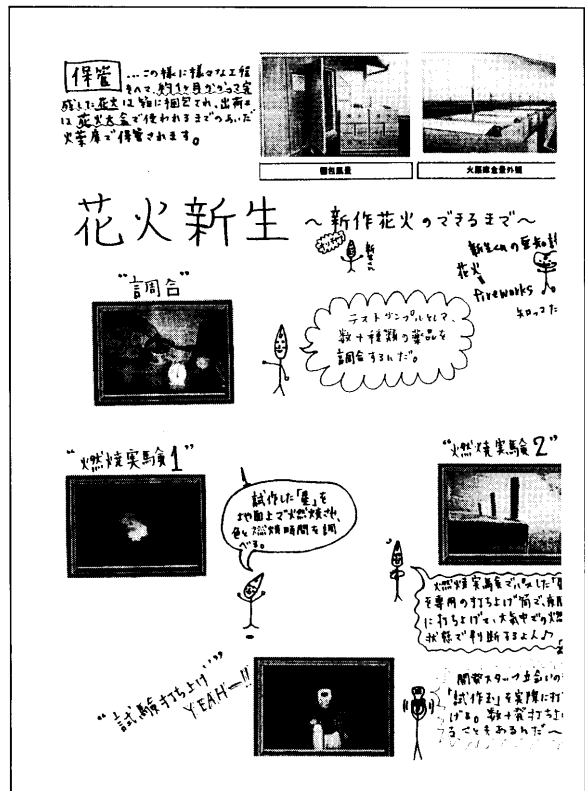 保管
…この様に様々な工程
をへて、約1ヶ月かかって完
成した花火は箱に梱包され、出荷又
は花火大会で使われるまでのあいだ
火薬庫で保管されます。
梱包風景
火薬庫全景外観
花火新生 ～新作花火のできるまで～
新生くん
花火
fireworks
知ってた
"調合"
テストサンプルとして、
数十種類の薬品を
調合するんだ。
"燃焼実験1"
試作した「星」を
地面上で燃焼させ、
色と燃焼時間を調
べる。
"燃焼実験2"
燃焼実験でパスした「
を専用の打ち上げ筒で、
に打ち上げて、大気中での燃
状態で判断するよん♪
"試験打ち上げ"
YEAH—!!
開発スタッフ立会いの
「試作玉」を実際に打
げる。数十発打ち上
ることもあるんだ～